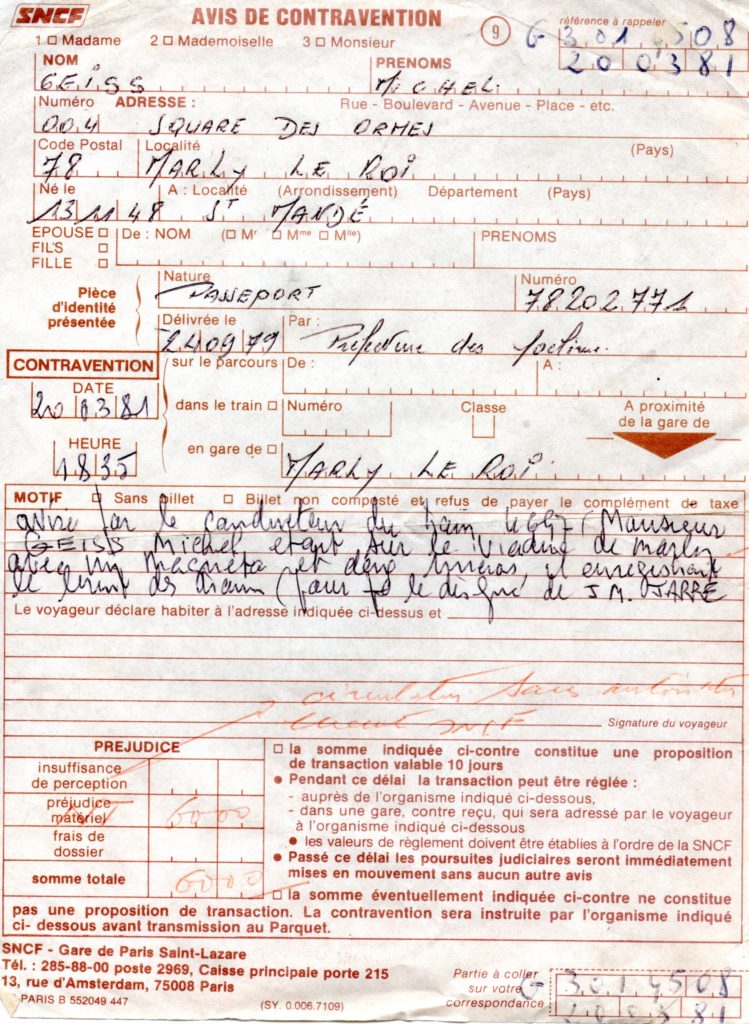 SNCF
AVIS DE CONTRAVENTION
9
référence à rappeler
1 □ Madame 2 □ Mademoiselle 3 □ Monsieur
G 301 4508
200381
NOM PRENOMS
GEISS MICHEL
Numéro ADRESSE : Rue - Boulevard - Avenue - Place - etc.
004 SQUARE DES ORMES
Code Postal Localité (Pays)
78 MARLY LE ROI
Né le A : Localité (Arrondissement) Département (Pays)
13 11 48 ST MANDÉ
EPOUSE □ De : NOM (□ Mr □ Mme □ Mlle) PRENOMS
FILS □
FILLE □
Pièce d'identité présentée
Nature Numéro
PASSEPORT 78202771
Délivrée le Par :
240979 Préfecture des
CONTRAVENTION
sur le parcours De : A :
DATE
20 03 81
dans le train □ Numéro Classe
A proximité de la gare de
HEURE
1835
en gare de □
MARLY LE ROI
MOTIF □ Sans billet □ Billet non composté et refus de payer le complément de taxe
avisé par le conducteur du train (Monsieur
GEISS Michel etant sur le Viaduc de Marly
avec un magneto et deux micros il enregistrait
le bruit des trains (pour le disque de J M. JARRE
Le voyageur déclare habiter à l'adresse indiquée ci-dessus et
circulation sans autorisation
SNCF
Signature du voyageur
PREJUDICE
insuffisance de perception
préjudice matériel 6000
frais de dossier
somme totale 6000
□ la somme indiquée ci-contre constitue une proposition
de transaction valable 10 jours
● Pendant ce délai la transaction peut être réglée :
- auprès de l'organisme indiqué ci-dessous,
- dans une gare, contre reçu, qui sera adressé par le voyageur
à l'organisme indiqué ci-dessous
● les valeurs de règlement doivent être établies à l'ordre de la SNCF
● Passé ce délai les poursuites judiciaires seront immédiatement
mises en mouvement sans aucun autre avis
□ la somme éventuellement indiquée ci-contre ne constitue
pas une proposition de transaction. La contravention sera instruite par l'organisme indiqué
ci- dessous avant transmission au Parquet.
SNCF - Gare de Paris Saint-Lazare
Tél. : 285-88-00 poste 2969, Caisse principale porte 215
13, rue d'Amsterdam, 75008 Paris
PARIS B 552049 447
(SY. 0.006.7109)
Partie à coller
sur votre
correspondance
G 301 4508
200381